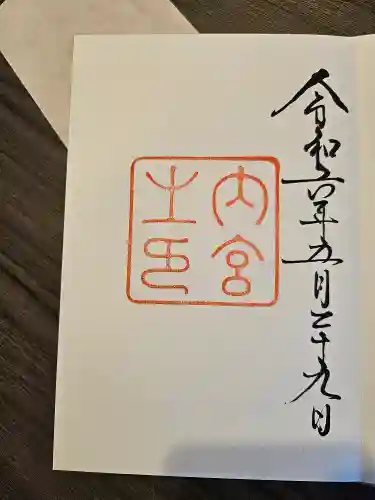 令和六年五月二十九日
内宮
之印